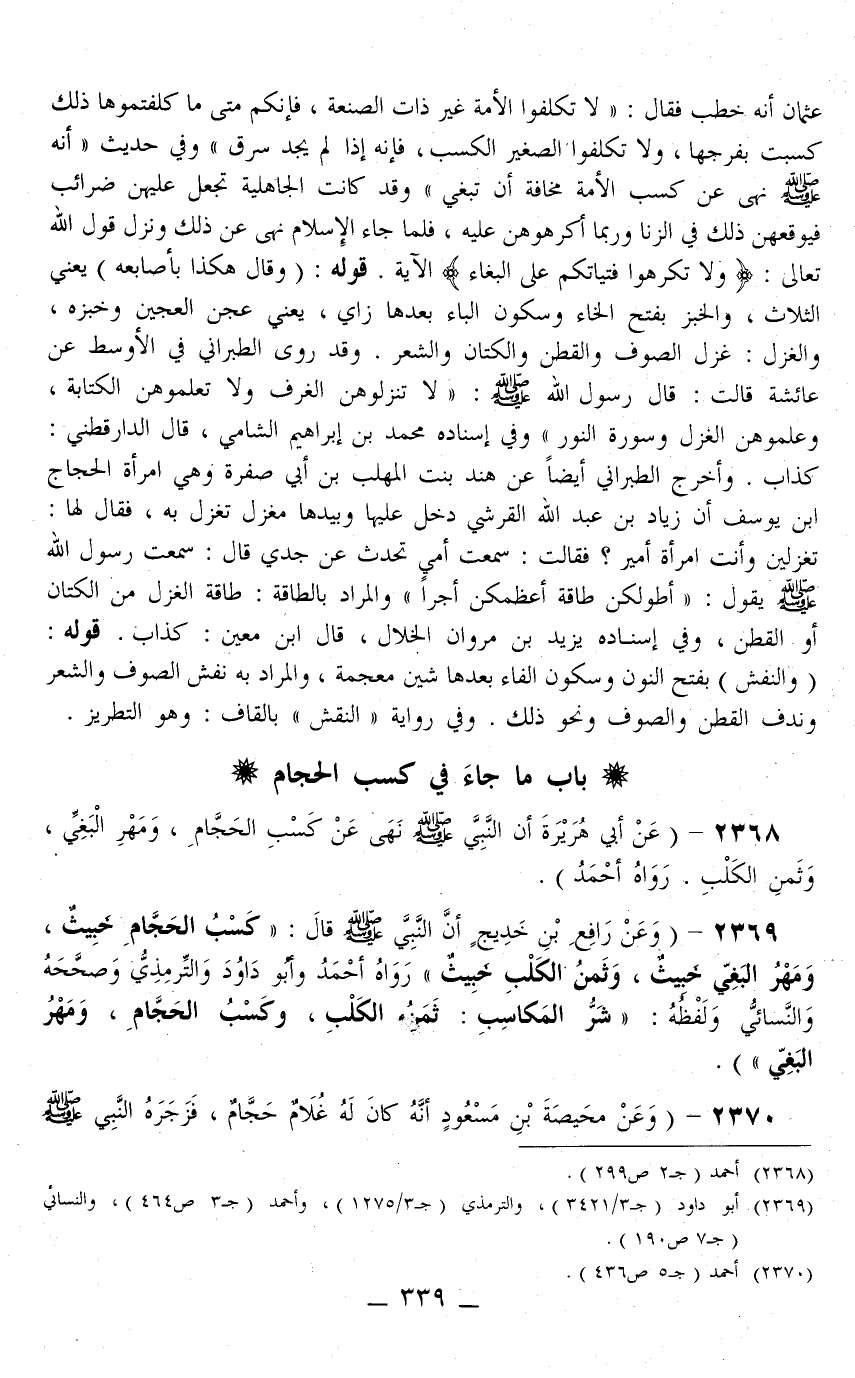 عثمان أنه خطب فقال : « لا تكلفوا الأمة غير ذات الصنعة ، فإنكم متى ما كلفتموها ذلك
كسبت بفرجها ، ولا تكلفوا الصغير الكسب ، فإنه إذا لم يجد سرق » وفي حديث « أنه
ﷺ نهى عن كسب الأمة مخافة أن تبغي » وقد كانت الجاهلية تجعل عليهن ضرائب
فيوقعهن ذلك في الزنا وربما أكرهوهن عليه ، فلما جاء الإسلام نهى عن ذلك ونزل قول الله
تعالى : ﴿ ولا تكرهوا فتياتكم على البغاء ﴾ الآية . قوله : ( وقال هكذا بأصابعه ) يعني
الثلاث ، والخبز بفتح الخاء وسكون الباء بعدها زاي ، يعني عجن العجين وخبزه ،
والغزل : غزل الصوف والقطن والكتان والشعر . وقد روى الطبراني في الأوسط عن
عائشة قالت : قال رسول الله ﷺ : « لا تنزلوهن الغرف ولا تعلموهن الكتابة ،
وعلموهن الغزل وسورة النور » وفي إسناده محمد بن إبراهيم الشامي ، قال الدارقطني :
كذاب . وأخرج الطبراني أيضاً عن هند بنت المهلب بن أبي صفرة وهي امرأة الحجاج
ابن يوسف أن زياد بن عبد الله القرشي دخل عليها وبيدها مغزل تغزل به ، فقال لها :
تغزلين وأنت امرأة أمير ؟ فقالت : سمعت أمي تحدث عن جدي قال : سمعت رسول الله
ﷺ يقول : « أطولكن طاقة أعظمكن أجراً » والمراد بالطاقة : طاقة الغزل من الكتان
أو القطن ، وفي إسناده يزيد بن مروان الخلال ، قال ابن معين : كذاب . قوله :
( والنفش ) بفتح النون وسكون الفاء بعدها شين معجمة ، والمراد به نفش الصوف والشعر
وندف القطن والصوف ونحو ذلك . وفي رواية « النقش » بالقاف : وهو التطريز .
باب ما جاءَ في كسب الحجام
٢٣٦٨ – ( عَنْ أبي هُرَيْرَةَ أن النَّبيَّ ﷺ نَهَى عَنْ كَسْبِ الحَجَّامِ ، وَمَهْرِ الْبَغِيِّ ،
وَثَمنِ الكَلْبِ . رَوَاهُ أحْمَدُ ) .
٢٣٦٩ – ( وَعَنْ رَافِعِ بْنِ خَدِيجٍ أنَّ النَّبيَّ ﷺ قالَ : « كَسْبُ الحَجَّامِ خَبِيثٌ ،
وَمَهْرُ البَغِيِّ خَبيثٌ ، وَثَمنُ الكَلْبِ خَبيثٌ » رَوَاهُ أحْمَدُ وأبُو دَاوُدَ وَالتِّرمِذِيُّ وَصحَّحَهُ
وَالنَّسائيُّ وَلَفْظُهُ : « شَرُّ المَكاسِبِ : ثَمَنُ الكَلْبِ ، وكَسْبُ الحَجَّامِ ، وَمَهْرُ
البَغِيِّ » ) .
٢٣٧٠ – ( وَعَنْ محَيصَةَ بْنِ مَسْعُودٍ أنَّهُ كانَ لَهُ غُلَامٌ حَجَّامٌ ، فَزَجَرَهُ النَّبي ﷺ
(٢٣٦٨) أحمد ( جـ٢ ص٢٩٩ ) .
(٢٣٦٩) أبو داود ( جـ٣٤٢١/٣ ) ، والترمذي ( جـ١٢٧٥/٣ ) ، وأحمد ( جـ٣ ص٤٦٤ ) ، والنسائي
( جـ٧ ص١٩٠ ) .
(٢٣٧٠) أحمد ( جـ٥ ص٤٣٦ ) .
– ٣٣٩ –